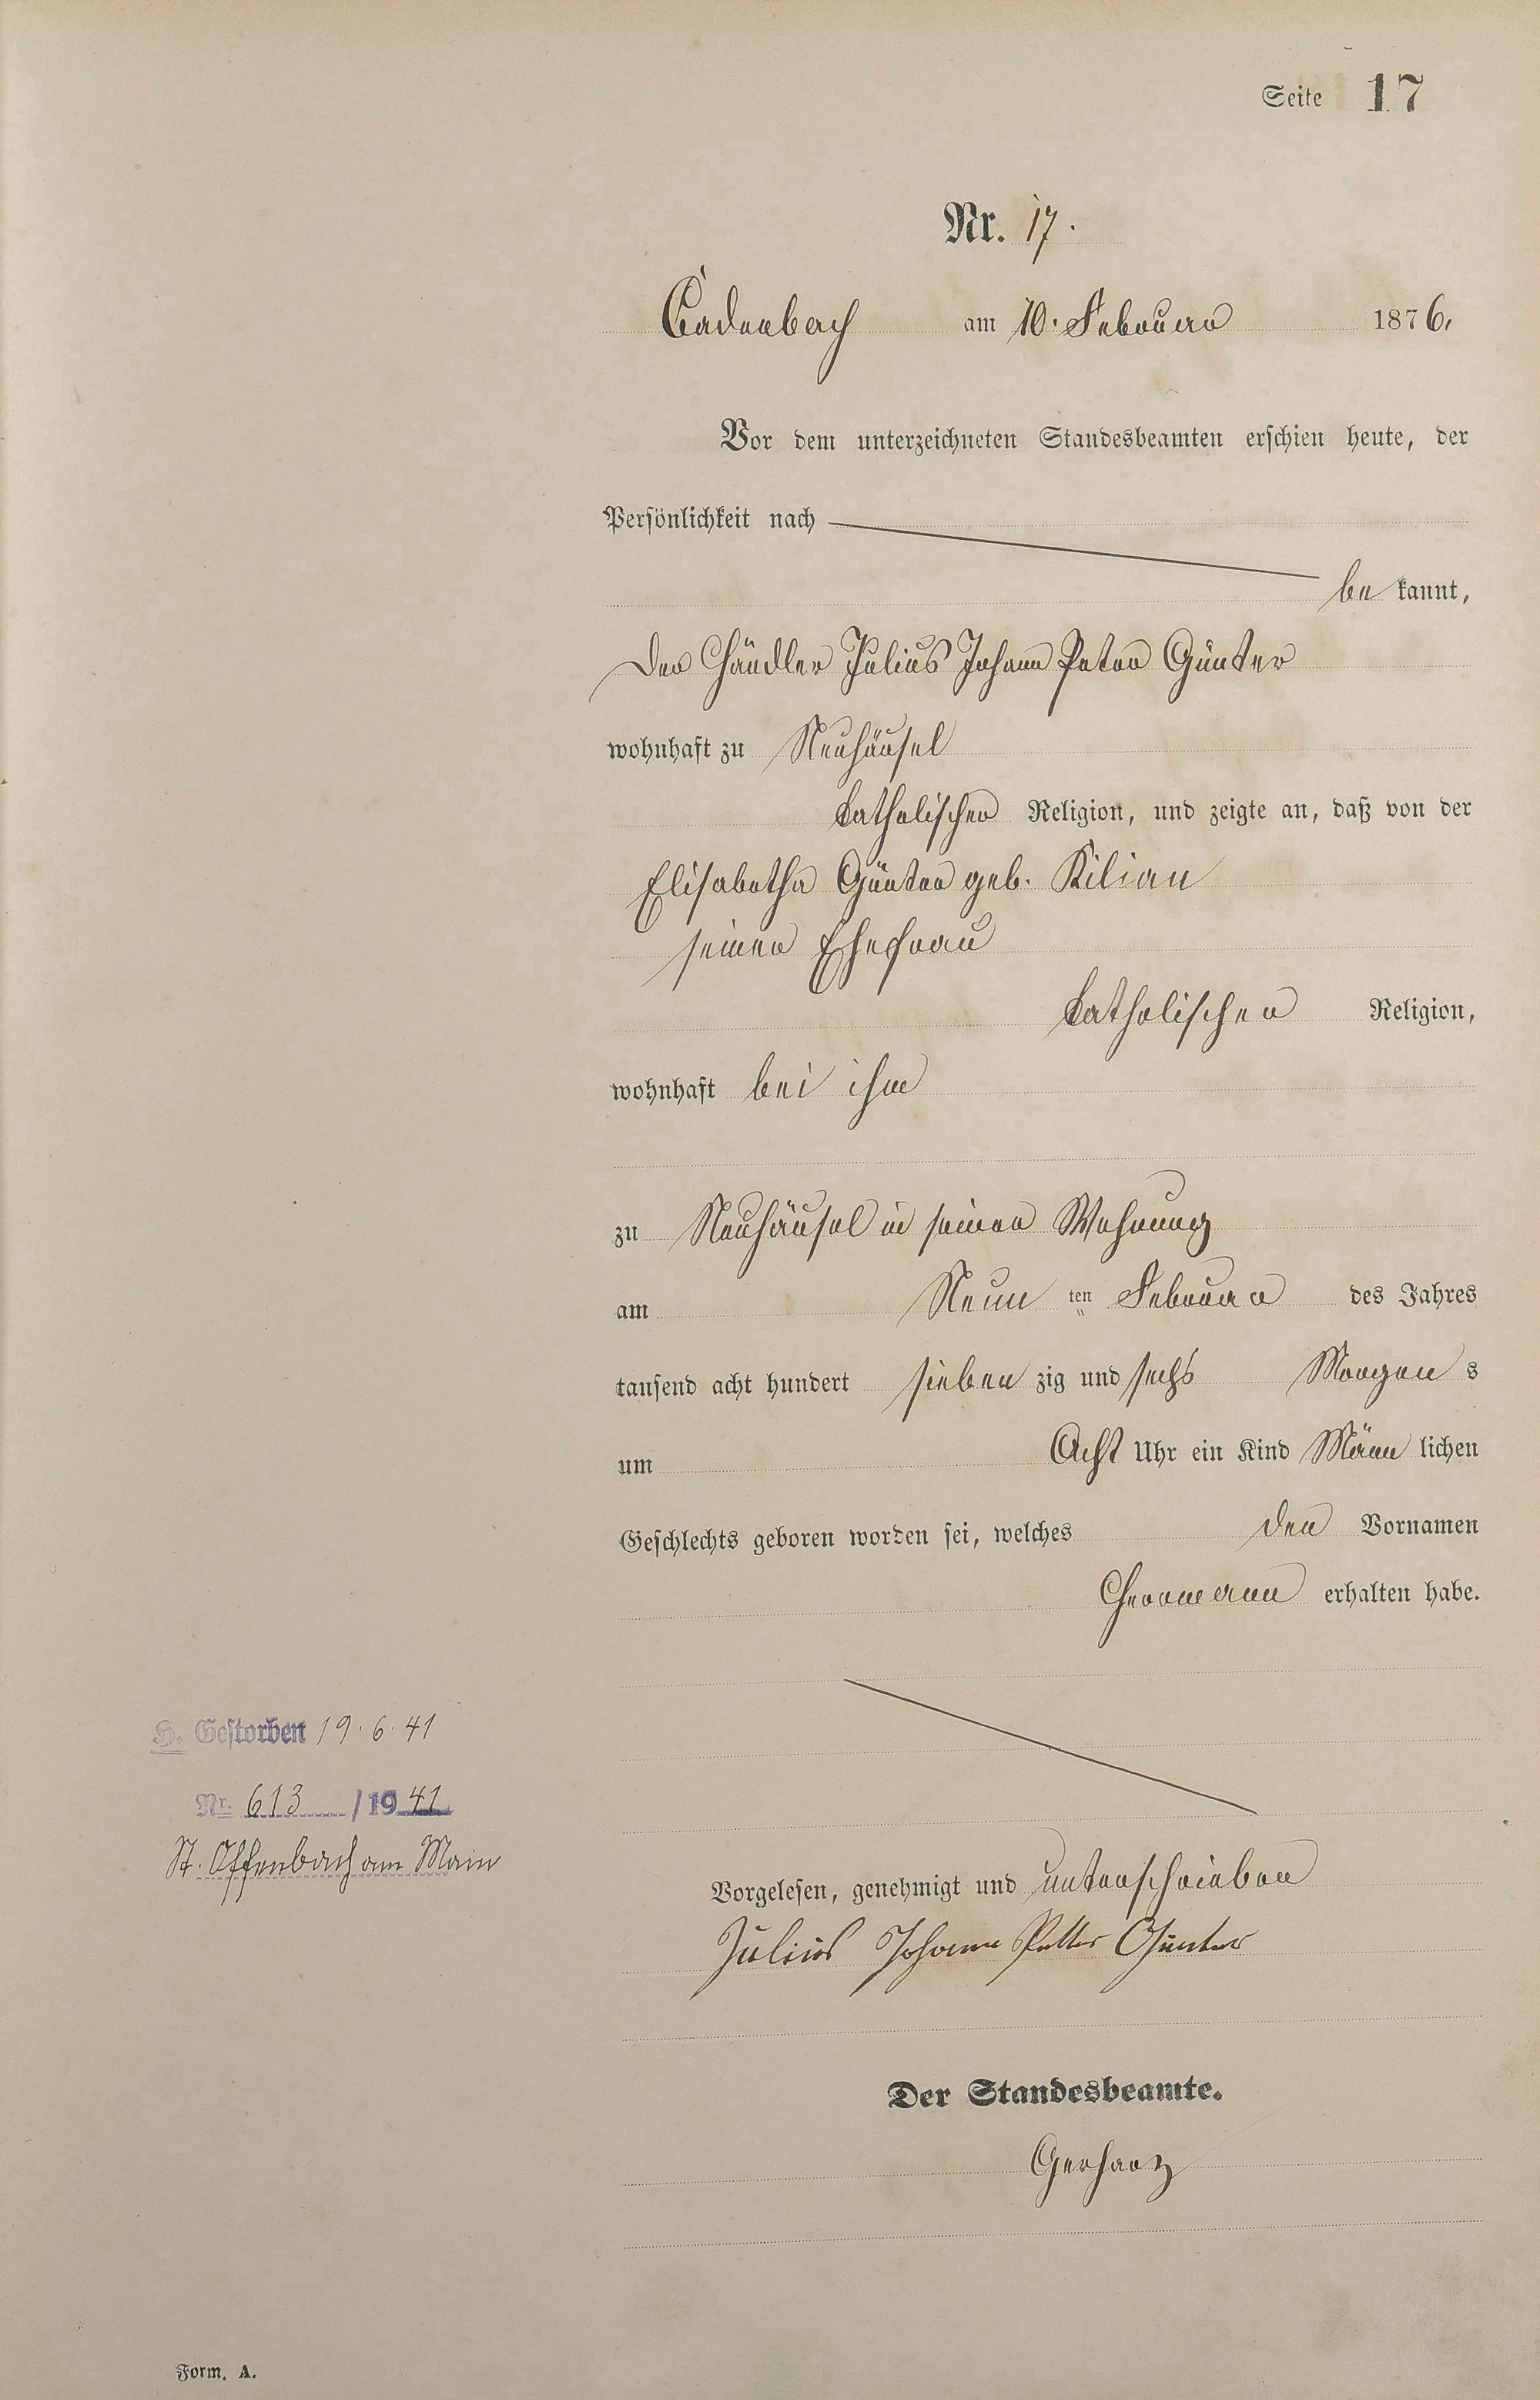 Seite 17
Nr. 17.
Cadenbach am 10. Februar 1876.
Vor dem unterzeichneten Standesbeamten erschien heute, der
Persönlichkeit nach
be kannt,
der Händler Julius Johann Peter Günter
wohnhaft zu Neuhäusel
katholischer Religion, und zeigte an, daß von der
Elisabetha Günter geb. Kilian
seiner Ehefrau
katholischer Religion,
wohnhaft bei ihm
zu Neuhäusel in seiner Wohnung
am Neun ten Februar des Jahres
tausend acht hundert sieben zig und sechs Morgen s
um Acht Uhr ein Kind Männ lichen
Geschlechts geboren worden sei, welches den Vornamen
Hermann erhalten habe.
H. Gestorben 19.6.41
Nr. 613 /1941
St. Offenbach am Main
Vorgelesen, genehmigt und unterschrieben
Julius Johann Petter Günter
Der Standesbeamte.
Gerharz
Form. A.